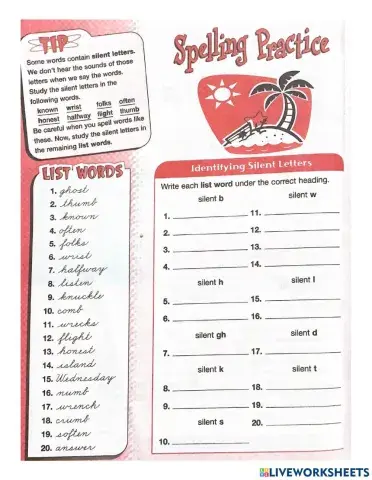 TIP
Some words contain silent letters.
We don't hear the sounds of those
letters when we say the words.
Study the silent letters in the
following words.
known wrist folks often
honest halfway flight thumb
Be careful when you spell words like
these. Now, study the silent letters in
the remaining list words.
LIST WORDS
1. ghost
2. thumb
3. known
4. often
5. folks
6. wrist
7. halfway
8. listen
9. knuckle
10. comb
11. wrecks
12. flight
13. honest
14. island
15. Wednesday
16. numb
17. wrench
18. crumb
19. soften
20. answer
Spelling Practice
Identifying Silent Letters
Write each list word under the correct heading.
silent b silent w
1. 11.
2. 12.
3. 13.
4. 14.
silent h silent l
5. 15.
6. 16.
silent gh silent d
7. 17.
silent k silent t
8. 18.
9. 19.
silent s 20.
10.
LIVEWORKSHEETS